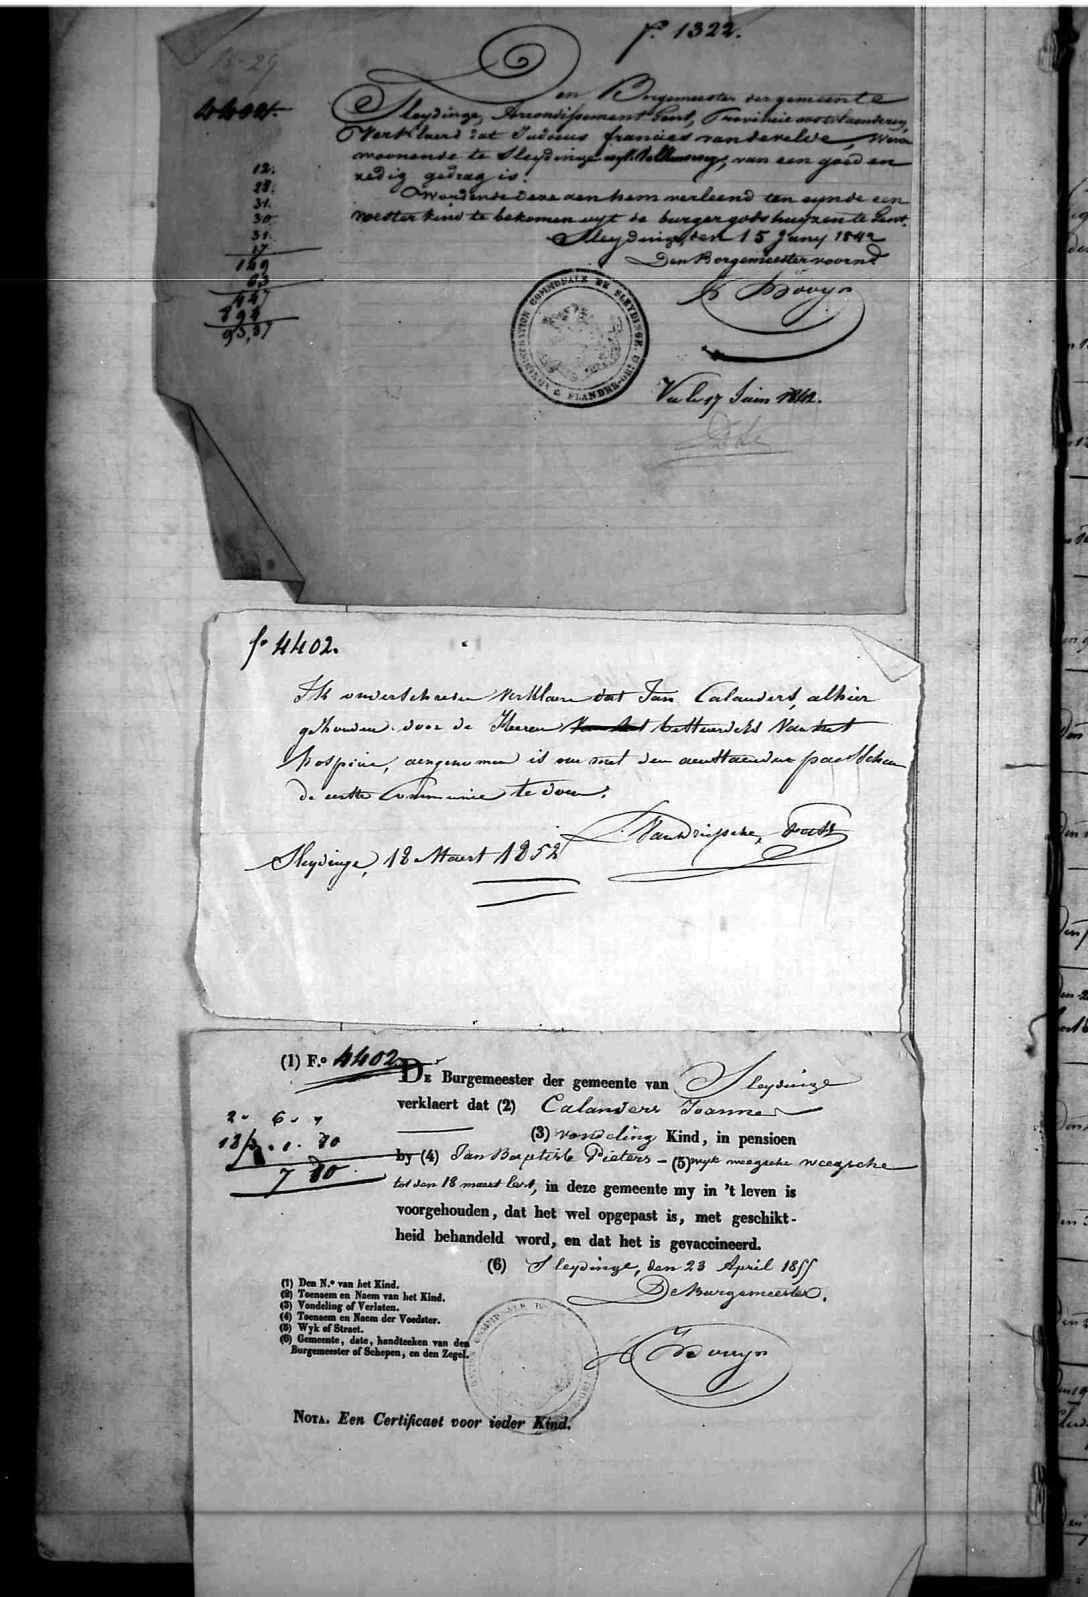 fo. 1322.
4402.
Den Borgemeester der gemeente
Sleydinge, Arrondissement Gent, Provincie oostvlaenderen,
Verklaerd dat Judocus francies vandevelde, Wever
woonende te Sleydinge wyk, van een goed en
zedig gedrag is.
Wordende deze aen hem verleend ten eynde een
voesterkind te bekomen uyt de burger godshuyzen te Gent.
Sleydinge, den 15 Juny 1842
Den Borgemeester voornd.
12.
28.
31.
30.
31.
17
149
63
447
894
93,87
ADMINISTRATION COMMUNALE DE SLEYDINGE. FLANDRE-ORI:
Vu le 17 Juin 1842.
fo 4402.
Ik onderschreven verklare dat Jan Calanders, alhier
gehouden door de Heeren van het bestuerders van het
hospice, aengenomen is om met den aenstaenden paesschen
de eerste Communie te doen.
Sleydinge, 18 Maert 1852
(1) F.o 4402
DE Burgemeester der gemeente van Sleydinge
verklaert dat (2) Calanders Joannes
(3) vondeling Kind, in pensioen
by (4) Jan Baptiste Pieters - (5) wyk weegsche weegsche
tot den 18 maert lest, in deze gemeente my in 't leven is
voorgehouden, dat het wel opgepast is, met geschikt-
heid behandeld word, en dat het is gevaccineerd.
(6) Sleydinge, den 23 April 1855
De Burgemeester.
(1) Den N.o van het Kind.
(2) Toenaem en Naem van het Kind.
(3) Vondeling of Verlaten.
(4) Toenaem en Naem der Voedster.
(5) Wyk of Straet.
(6) Gemeente, date, handteeken van den
Burgemeester of Schepen, en den Zegel.
NOTA. Een Certificaet voor ieder Kind.